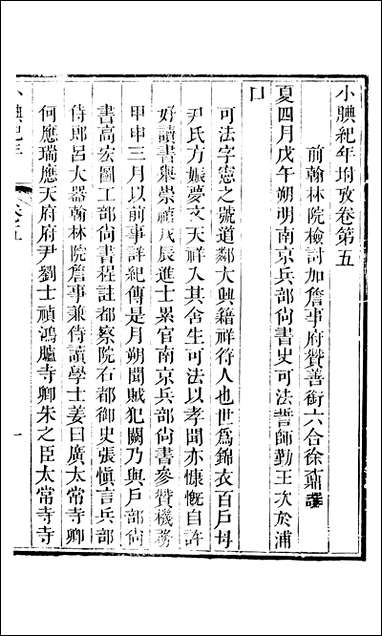 小腆紀年坿攷卷第五
前翰林院檢討加詹事府贊善銜六合徐鼒譔
夏四月戊午朔明南京兵部尚書史可法誓師勤王次於浦
口
可法字憲之號道鄰大興籍祥符人也世爲錦衣百戶母
尹氏方娠夢文天祥入其舍生可法以孝聞亦慷慨自許
好讀書舉崇禎戊辰進士累官南京兵部尚書參贊機務
甲申三月以前事詳紀傳是月朔聞賊犯闕乃與戶部尚
書高宏圖工部尚書程註都察院右都御史張愼言兵部
侍郎呂大器翰林院詹事兼侍讀學士姜曰廣太常寺卿
何應瑞應天府府尹劉士禎鴻臚寺卿朱之臣太常寺寺
小腆紀年
卷五
一